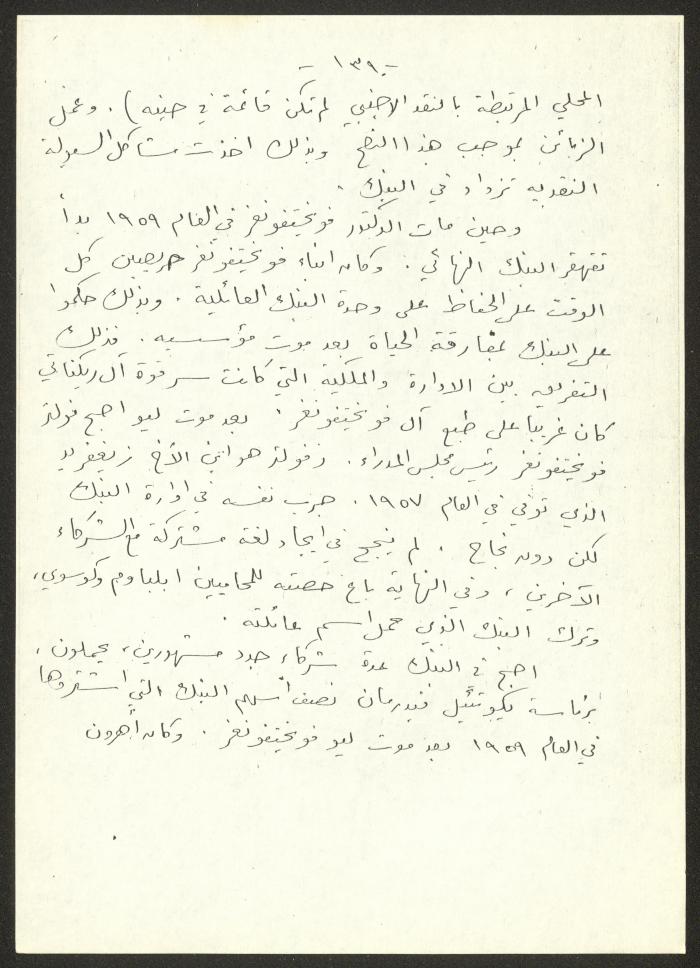 -١٣٩٠-
المحلي المرتبطة بالنقد الاجنبي لم تكن قائمة في حينه ) . وعمل
الزبائن بموجب هذا النهج وبذلك اخذت مشاكل السيولة
النقديه تزداد في البنك .
وحين مات الدكتور فويختفونغر في العام ١٩٥٩ بدأ
تقهقر البنك النهائي . وكان ابناء فويختفونغر حريصين كل
الوقت على الحفاظ على وحدة البنك العائلية . وبذلك حكموا
على البنك بمفارقة الحياة بعد موت مؤسسيه . فذلك
التفريق بين الادارة والملكية التي كانت سر قوة آل ريكناتي
كان غريبا على طبع آل فويختفونغر . بعد موت ليو اصبح فولتر
فويختفونغر رئيس مجلس المدراء . وفولتر هو ابن الأخ زيغفريد
الذي توفي في العام ١٩٥٧ . جرب نفسه في ادارة البنك
لكن دون نجاح . لم ينجح في ايجاد لغة مشتركة مع الشركاء
الآخرين ، وفي النهاية باع حصته للمحاميين ابلباوم وكوسوي ،
وترك البنك الذي حمل اسم عائلته .
اصبح في البنك عدة شركاء جدد مشهورين ، يحملون ،
برئاسة يكوتيئيل فيدرمان نصف أسهم البنك التي اشتروها
في العام ١٩٥٩ بعد موت ليو فويختفونغر . وكان أهرون